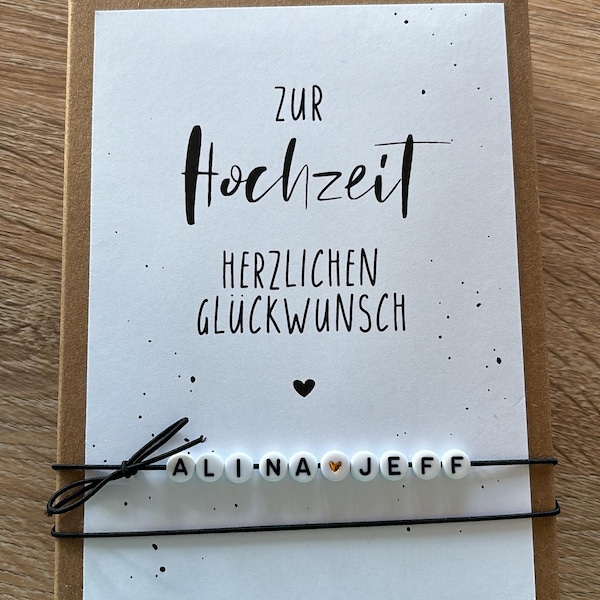 ZUR
Hochzeit
HERZLICHEN
GLÜCKWUNSCH
ALINA JEFF